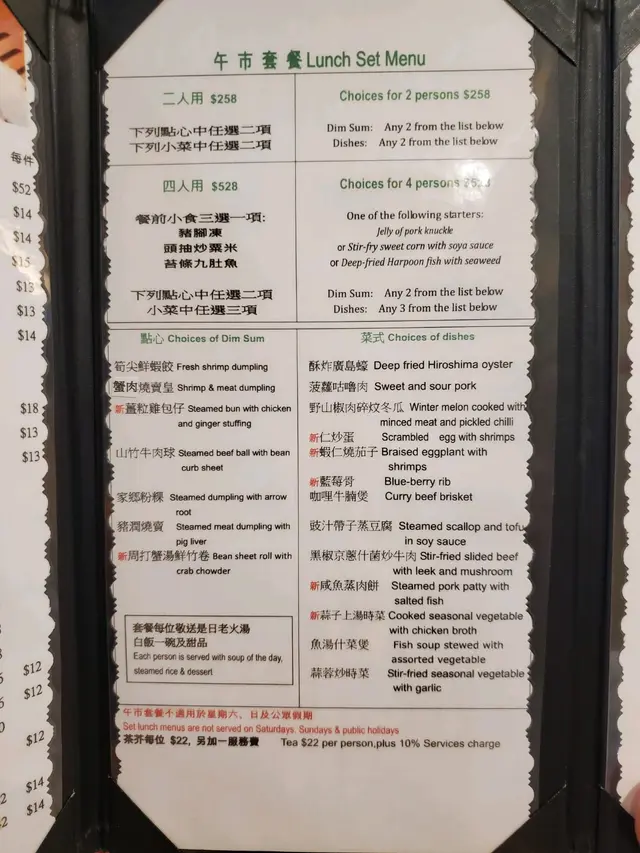 午市套餐 Lunch Set Menu
二人用 $258
下列點心中任選二項
下列小菜中任選二項
Choices for 2 persons $258
Dim Sum: Any 2 from the list below
Dishes: Any 2 from the list below
四人用 $528
餐前小食三選一項:
豬腳凍
頭抽炒粟米
苔條九肚魚
下列點心中任選二項
小菜中任選三項
Choices for 4 persons
One of the following starters:
Jelly of pork knuckle
or Stir-fry sweet corn with soya sauce
or Deep-fried Harpoon fish with seaweed
Dim Sum: Any 2 from the list below
Dishes: Any 3 from the list below
點心 Choices of Dim Sum
筍尖鮮蝦餃 Fresh shrimp dumpling
蟹肉燒賣皇 Shrimp & meat dumpling
新薑粒雞包仔 Steamed bun with chicken
and ginger stuffing
山竹牛肉球 Steamed beef ball with bean
curb sheet
家鄉粉粿 Steamed dumpling with arrow
root
豬潤燒賣 Steamed meat dumpling with
pig liver
新周打蟹湯鮮竹卷 Bean sheet roll with
crab chowder
套餐每位敬送是日老火湯
白飯一碗及甜品
Each person is served with soup of the day,
steamed rice & dessert
菜式 Choices of dishes
酥炸廣島蠔 Deep fried Hiroshima oyster
菠蘿咕嚕肉 Sweet and sour pork
野山椒肉碎炆冬瓜 Winter melon cooked with
minced meat and pickled chilli
新仁炒蛋 Scrambled egg with shrimps
新蝦仁燒茄子 Braised eggplant with
shrimps
新藍莓骨 Blue-berry rib
咖哩牛腩煲 Curry beef brisket
豉汁帶子蒸豆腐 Steamed scallop and tofu
in soy sauce
黑椒京蔥什菌炒牛肉 Stir-fried slided beef
with leek and mushroom
新咸魚蒸肉餅 Steamed pork patty with
salted fish
新蒜子上湯時菜 Cooked seasonal vegetable
with chicken broth
魚湯什菜煲 Fish soup stewed with
assorted vegetable
蒜蓉炒時菜 Stir-fried seasonal vegetable
with garlic
午市套餐不適用於星期六、日及公眾假期
Set lunch menus are not served on Saturdays. Sundays & public holidays
茶芥每位 $22, 另加一服務費 Tea $22 per person,plus 10% Services charge
每件
$52
$14
$14
$15
$13
$13
$14
$18
$13
$13
$12
$12
$12
$14
$14